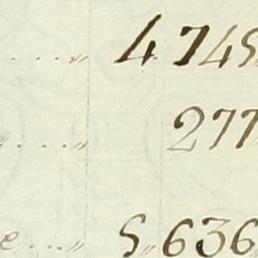 ....,, 4745,,
....,, 277
e...,, 5,,636